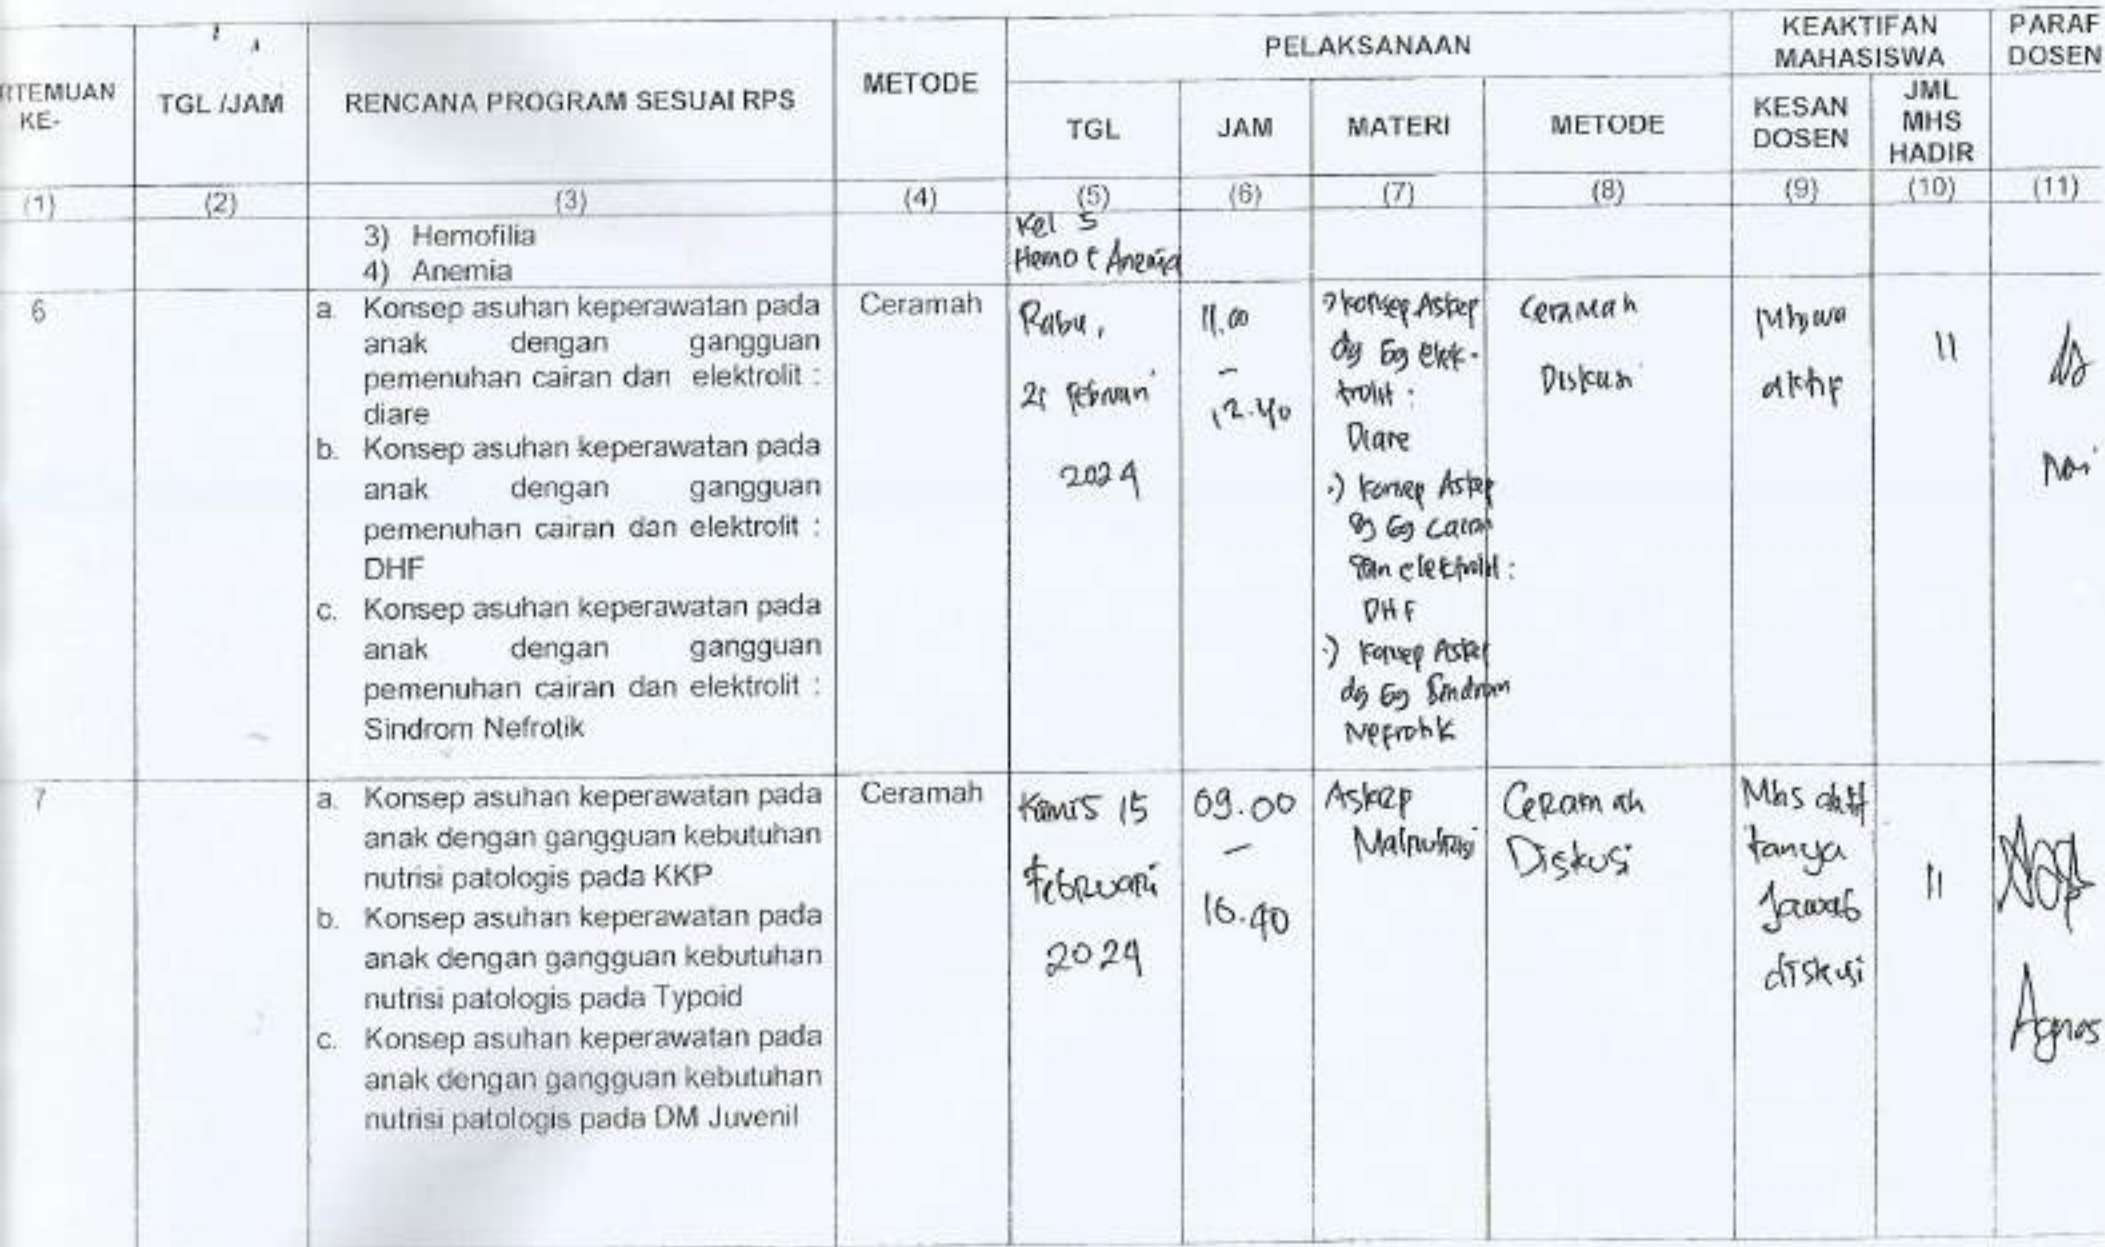 RTEMUAN KE-
TGL /JAM
RENCANA PROGRAM SESUAI RPS
METODE
PELAKSANAAN
KEAKTIFAN MAHASISWA
PARAF DOSEN
TGL
JAM
MATERI
METODE
KESAN DOSEN
JML MHS HADIR
(1) (2) (3) (4) (5) (6) (7) (8) (9) (10) (11)
3) Hemofilia
4) Anemia
Kel 5
Hemo & Anemia
6
a. Konsep asuhan keperawatan pada
anak dengan gangguan
pemenuhan cairan dan elektrolit :
diare
b. Konsep asuhan keperawatan pada
anak dengan gangguan
pemenuhan cairan dan elektrolit :
DHF
c. Konsep asuhan keperawatan pada
anak dengan gangguan
pemenuhan cairan dan elektrolit :
Sindrom Nefrotik
Ceramah
Rabu,
21 Februari
2024
11.00
–
12.40
konsep Askep
dg Gg elek-
trolit :
Diare
·) Konsep Askep
dg Gg Cairan
dan elektrolit :
DHF
·) Konsep Askep
dg Gg Sindrom
Nefrotik
Ceramah
Diskusi
aktif
11
7
a. Konsep asuhan keperawatan pada
anak dengan gangguan kebutuhan
nutrisi patologis pada KKP
b. Konsep asuhan keperawatan pada
anak dengan gangguan kebutuhan
nutrisi patologis pada Typoid
c. Konsep asuhan keperawatan pada
anak dengan gangguan kebutuhan
nutrisi patologis pada DM Juvenil
Ceramah
Kamis 15
Februari
2024
09.00
–
16.40
Askep
Malnutrisi
Ceramah
Diskusi
Mhs aktif
tanya
Jawab
diskusi
11
Agnes